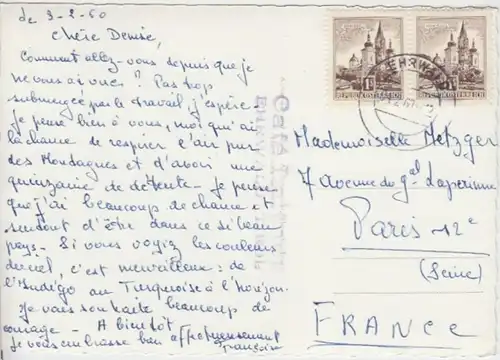 le 9-2-60
Chère Denise,
Comment allez-vous depuis que je
ne vous ai vue ? Pas trop
submergée par le travail j'espère.
Je pense bien à vous, moi qui ai
la chance de respirer l'air pur
des Montagnes et d'avoir une
quinzaine de détente. Je pense
que j'ai beaucoup de chance et
surtout d'être dans ce si beau
pays. Si vous voyiez les couleurs
du ciel, c'est merveilleux : de
l'Indigo au Turquoise à l'horizon.
Je vous souhaite beaucoup de
courage - A bientôt
Je vous embrasse bien affectueusement
Françoise
REPUBLIK ÖSTERREICH
REPUBLIK ÖSTERREICH
Mademoiselle Metzger
7 avenue du Gal Laperrine
Paris 12e
(Seine)
FRANCE
Café